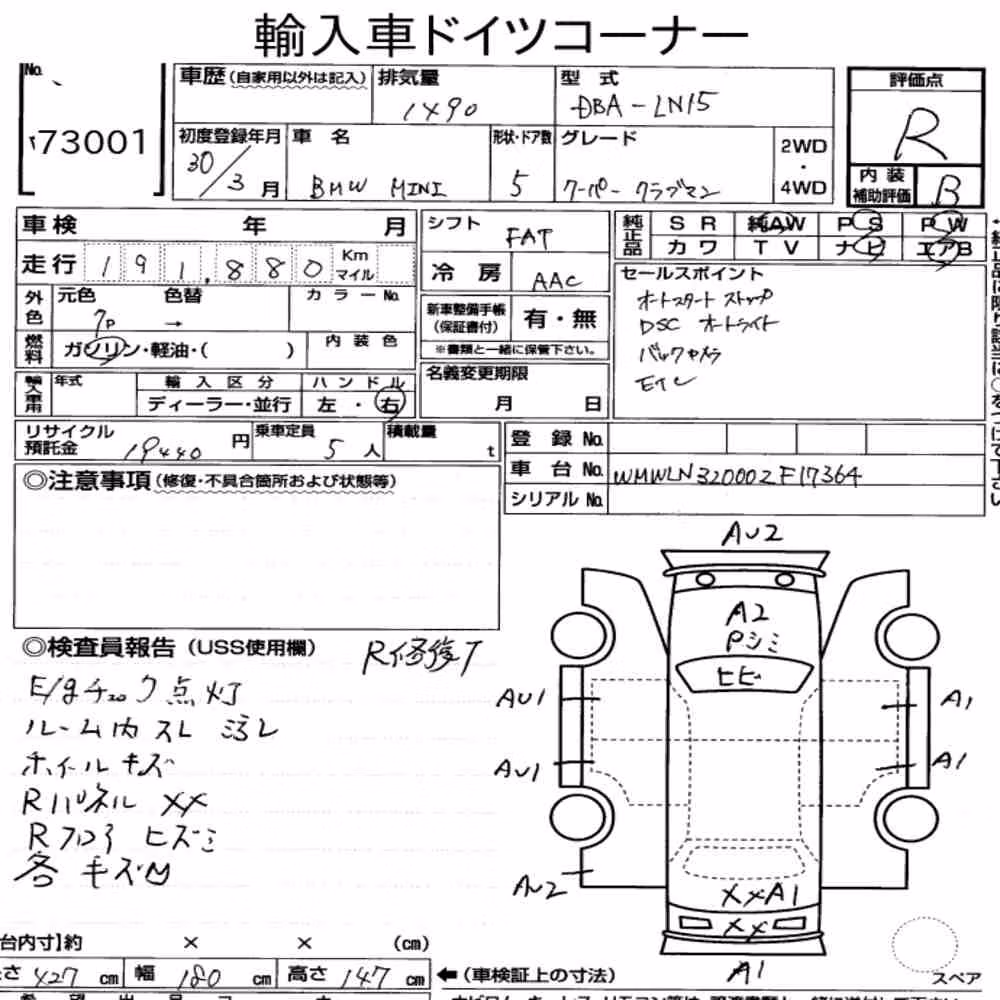 輸入車ドイツコーナー
No.
73001
車歴(自家用以外は記入)
排気量
1490
型 式
DBA-LN15
評価点
R
初度登録年月
30/3月
車 名
BMW MINI
形状・ドア数
5
グレード
クーパー クラブマン
2WD
・
4WD
内 装
補助評価
B
車検 年 月
シフト
FAT
純正品
S R 純AW P S P W
カ ワ T V ナ ビ エアB
走行 191,880 Km
マイル
冷 房
AAC
セールスポイント
オートスタート ストップ
DSC オートライト
バックカメラ
ETC
外色
元色 色替 カ ラ ー No.
→
新車整備手帳
(保証書付)
有・無
※書類と一緒に保管下さい。
燃料
ガソリン・軽油・( )
内 装 色
輸入車用
年式
輸 入 区 分
ディーラー・並行
ハ ン ド ル
左 ・ 右
名義変更期限
月 日
リサイクル
預託金
19440 円
乗車定員
5 人
積載量
t
登 録 No.
車 台 No.
WMWLN32000ZF17364
シリアル No.
◎注意事項(修復・不具合箇所および状態等)
◎検査員報告(USS使用欄)
E/gチェック点灯
ルーム内スレ 汚レ
ホイールキズ
Rパネル XX
Rフロア ヒズミ
各 キズ凹
AU2
A2
Pシミ
ヒビ
AU1
A1
AU1
A1
AU2
XXA1
XX
A1
台内寸】約 × × (cm)
さ 427 cm
幅 180 cm
高さ 147 cm
←(車検証上の寸法)
スペア